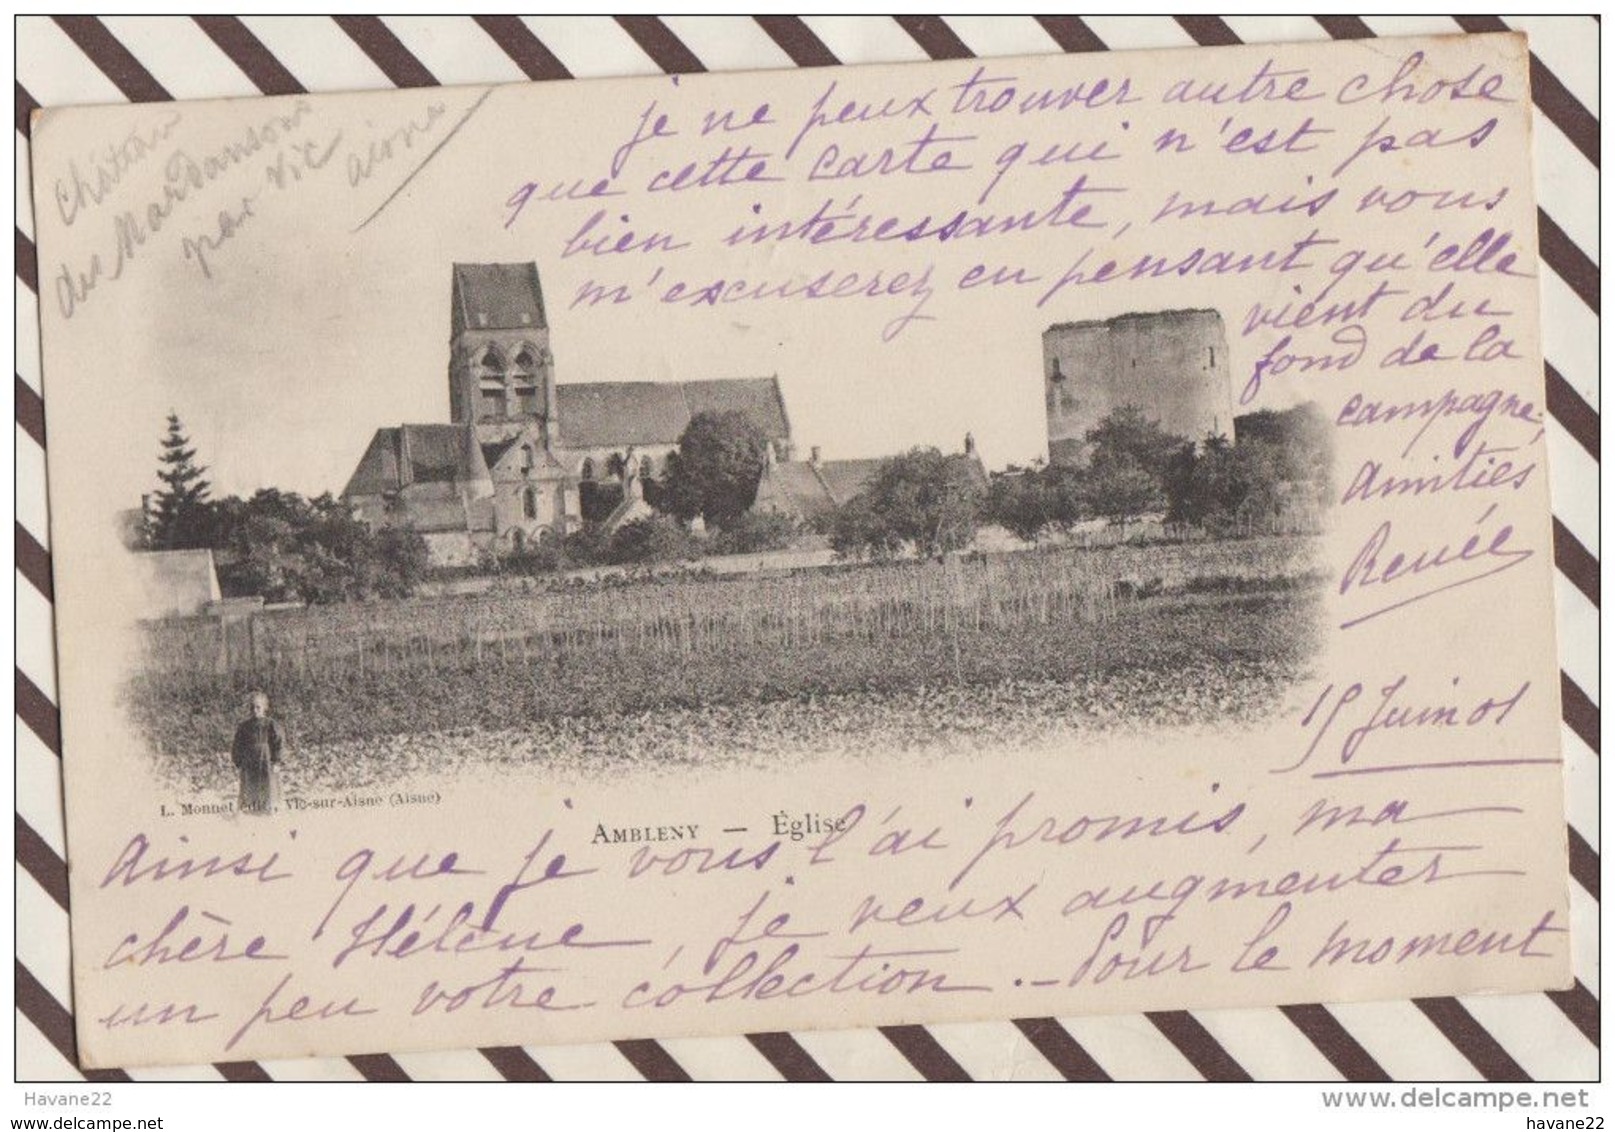 Château
du Mardanson
par Vic
aisne
je ne peux trouver autre chose
que cette carte qui n'est pas
bien intéressante, mais vous
m'excuserez en pensant qu'elle
vient du
fond de la
campagne,
Amitiés
Renée
15 Juin 01
L. Monnet édit., Vic-sur-Aisne (Aisne)
AMBLENY — Église
Ainsi que je vous l'ai promis, ma
chère Hélène, je veux augmenter
un peu votre collection. — Pour le moment
Havane22
www.delcampe.net
havane22
havane22